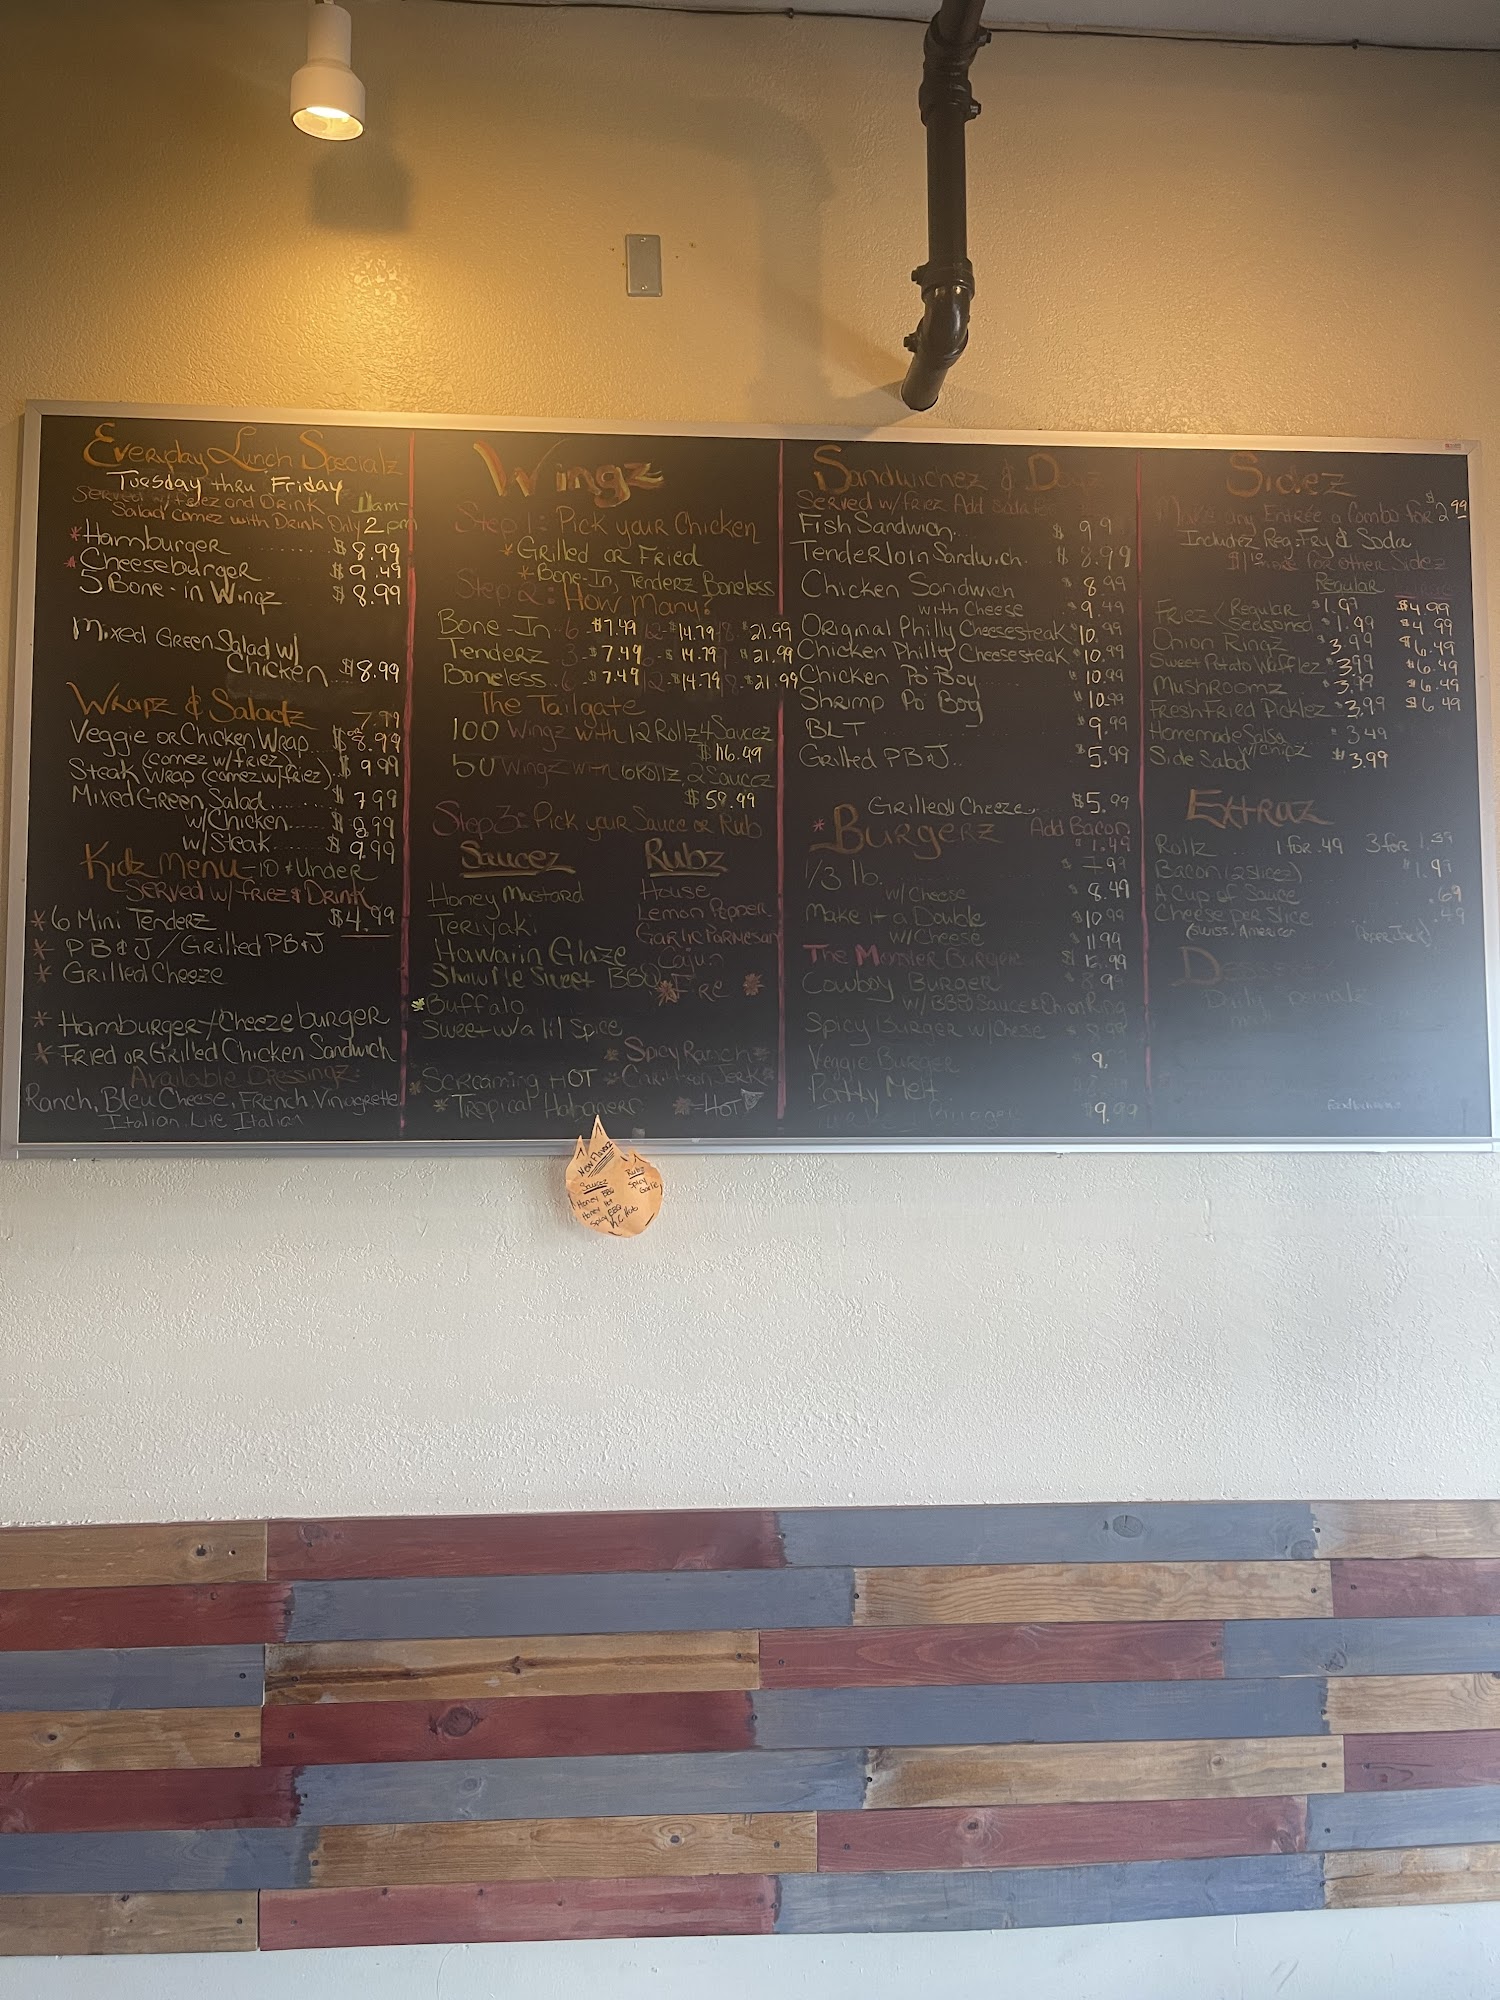 Everyday Lunch Specialz
Tuesday thru Friday
Served w/friez and Drink 11am-
Salad comez with Drink Only 2pm
*Hamburger ........ $8.99
*Cheeseburger ..... $9.49
5 Bone-in Wingz $8.99
Mixed Green Salad w/
Chicken... $8.99
Wrapz & Saladz
7.99
Veggie or Chicken Wrap... $ or 8.99
(comez w/friez)
Steak Wrap (comez w/friez). $9.99
Mixed Green Salad....... $7.99
w/Chicken...... $8.99
w/Steak... $9.99
Kidz Menu-10 & Under
Served w/ friez & Drink
$4.99
*6 Mini Tenderz
* PB&J/Grilled PB&J
* Grilled Cheeze
* Hamburger/Cheezeburger
* Fried or Grilled Chicken Sandwich
Available Dressingz:
Ranch, Bleu Cheese, French, Vinagrette
Italian, Lite Italian
Wingz
Step 1: Pick your Chicken
*Grilled or Fried
*Bone-In, Tenderz Boneless
Step 2: How Many?
Bone-In 6-$7.49 12-$14.79 18-$21.99
Tenderz 3-$7.49 6-$14.79 $21.99
Boneless.. 6 $7.49 12-$14.79 18-$21.99
The Tailgate
100 Wingz with 12 Rollz 4 Saucez
$116.49
50 Wingz with 6 Rollz, 2 Saucez
$59.99
Step 3: Pick your Sauce or Rub
Saucez
Honey Mustard
Teriyaki
Hawaiin Glaze
Show Me Sweet BBQ
*Buffalo
Sweet w/a lil Spice
*Screaming HOT
*Tropical Habanero
Rubz
House
Lemon Pepper
Garlic Parmesan
Cajun
*Fire *
*Spicy Ranch*
*Caribbean Jerk*
*=HOT
Sandwichez & Dogz
Served w/friez Add soda
Fish Sandwich... $ 9 9
Tenderloin Sandwich. $8.99
Chicken Sandwich $8.99
with Cheese $9.49
Original Philly Cheesesteak $10.99
Chicken Philly Cheesesteak $10.99
Chicken Po Boy $10.99
Shrimp Po Boy $10.99
BLT $9.99
Grilled PB&J.. $5.99
Grilled Cheeze.. $5.99
*Burgerz Add Bacon
$1.49
1/3 lb. $7.99
w/Cheese $8.49
Make it a Double $10.99
w/Cheese $11.99
The Monster Burger
Cowboy Burger
w/BBQ Sauce & Onion Ring
Spicy Burger w/Cheese
Veggie Burger
Patty Melt
$9.99
Sidez
Make any Entrée a Combo for $2.99
Includez Reg. Fry & Soda
$1 more for other Sidez
Regular
Friez (Regular $1.99 $4.99
seasoned $1.99 $4.99
Onion Ringz 3.99 $6.49
Sweet Potato Wafflez $3.99 $6.49
Mushroomz $3.99 $6.49
Fresh Fried Picklez $3.99 $6.49
Homemade Salsa $3.49
w/chipz
Side Salad $3.99
Extraz
Rollz .... 1 for .49 3 for 1.39
Bacon (2 slicez) $1.99
A Cup of Sauce .69
Cheese per slice .49
(Swiss, American Pepper Jack)
Daily
New Flavorz
Saucez
Honey BBQ
Honey Hot
Spicy BBQ
K.C. Hot
Rubz
Spicy
Garlic